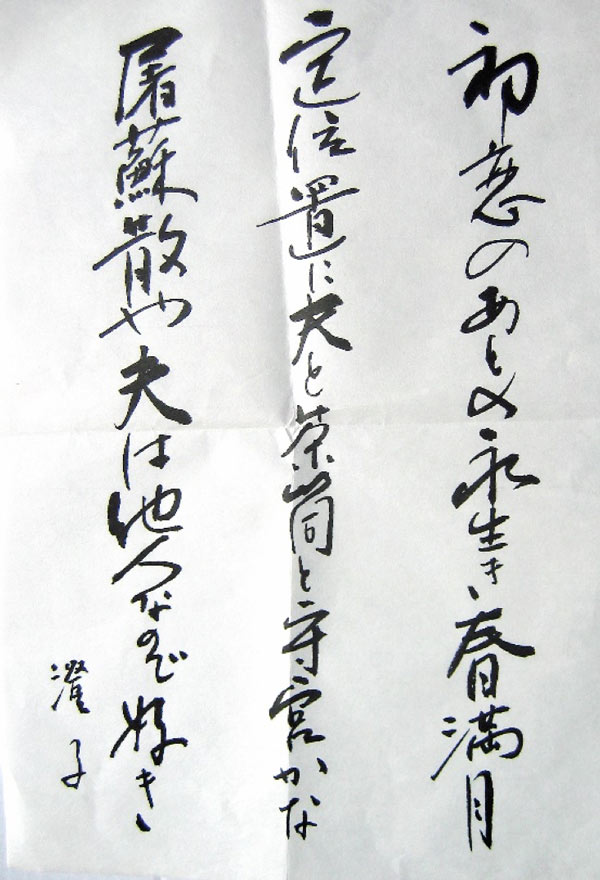 初恋のあとの永生き春満月
定位置に夫と茶筒と守宮かな
屠蘇散や夫は他人なので好き
澄子